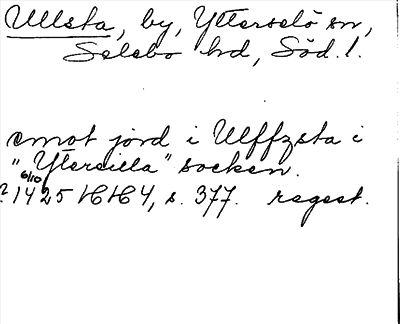 Ullsta, by, Ytterselö sn,
Selebo hd, Söd. l.
emot jord i Ulffzsta i
"Ytersilla" socken.
6/10
? 1425 HH 4, s. 377. regest.